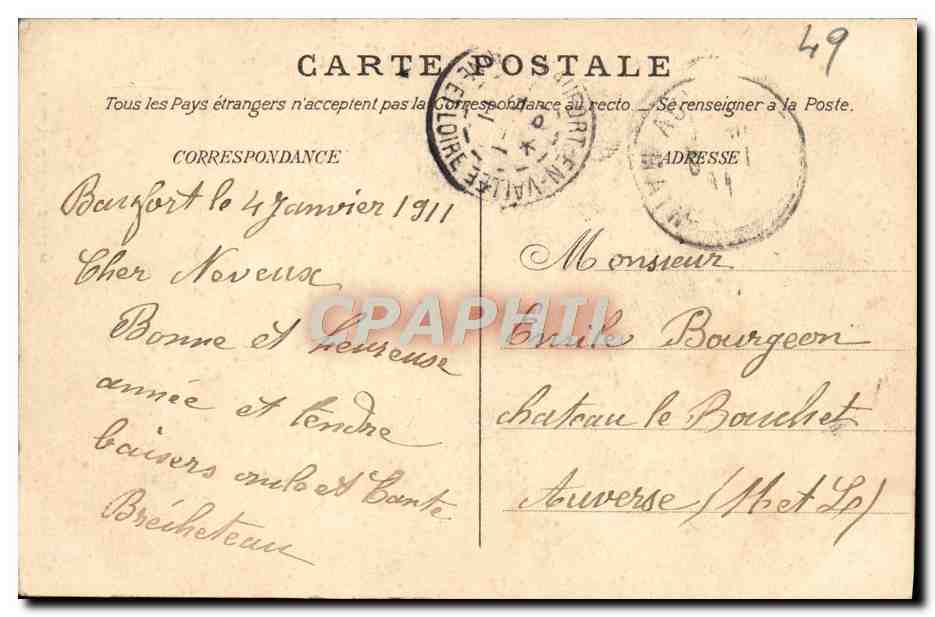 49
CARTE POSTALE
Tous les Pays étrangers n'acceptent pas la Correspondance au recto — Se renseigner a la Poste.
CORRESPONDANCE
ADRESSE
BEAUFORT-EN-VALLÉE
MAINE-ET-LOIRE
Baufort le 4 Janvier 1911
Cher Neveux
Bonne et heureuse
année et tendre
baisers oncle et tante
Brécheteau
Monsieur
Emile Bourgeon
chateau le Bouchet
Auverse (M et L)
CPAPHIL